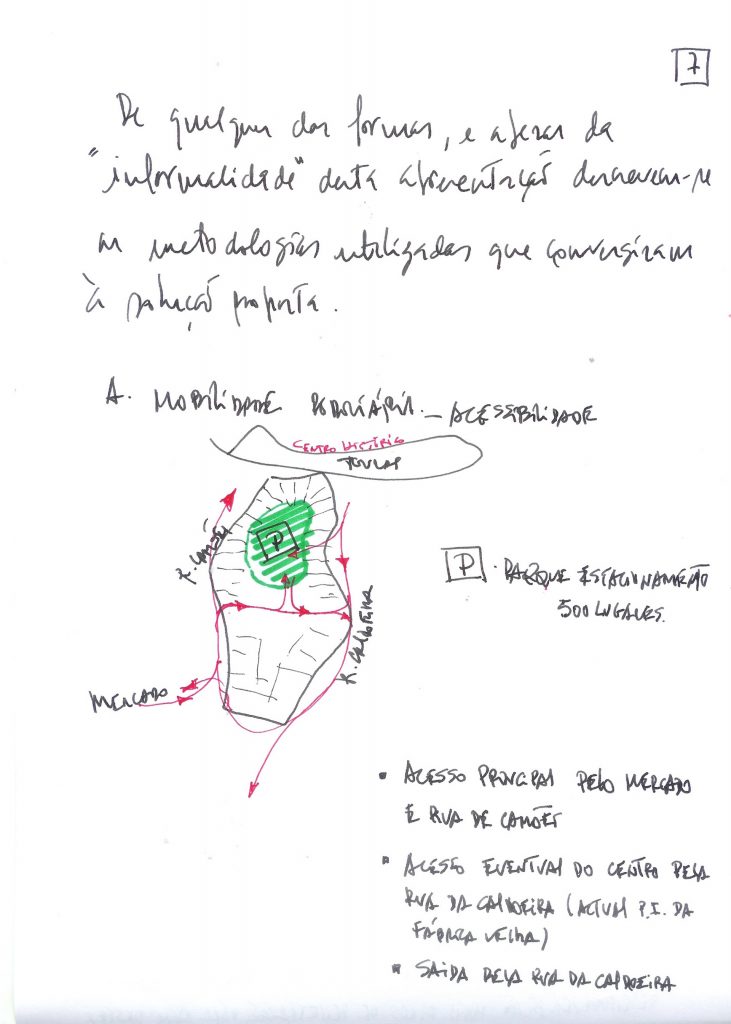 7
De qualquer das formas, e apesar da
"informalidade" desta apresentação descrevem-se
as metodologias utilizadas que convergiram
à solução proposta.
A. MOBILIDADE RODOVIÁRIA - ACESSIBILIDADE
CENTRO HISTÓRICO
R. CAMÕES
P
P - PARQUE ESTACIONAMENTO
500 LUGARES.
R. CALDEIRA
MERCADO
• ACESSO PRINCIPAL PELO MERCADO
E RUA DE CAMÕES
• ACESSO EVENTUAL DO CENTRO PELA
RUA DA CALDEIRA (ACTUAL P.I. DA
FÁBRICA VELHA)
• SAÍDA PELA RUA DA CALDEIRA